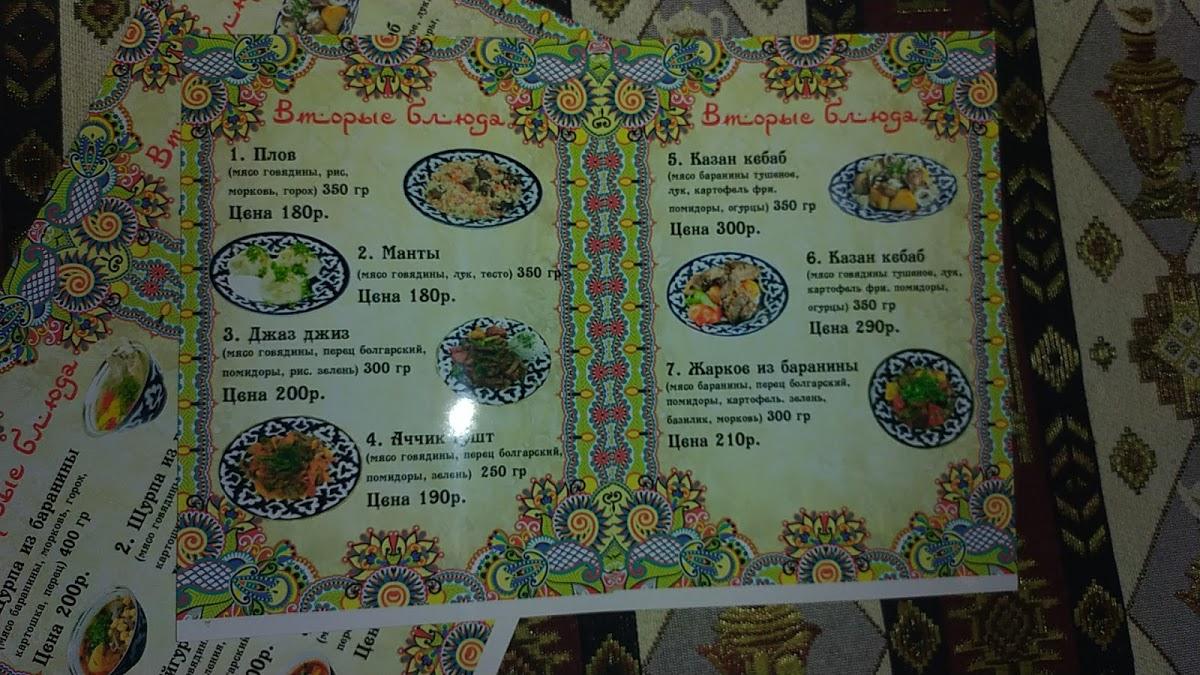 Вторые блюда
1. Плов
(мясо говядины, рис,
морковь, горох) 350 гр
Цена 180р.
2. Манты
(мясо говядины, лук, тесто) 350 гр
Цена 180р.
3. Джаз джиз
(мясо говядины, перец болгарский,
помидоры, рис. зелень) 300 гр
Цена 200р.
4. Аччик
(мясо говядины, перец болгарский,
помидоры, зелень) 250 гр
Цена 190р.
Вторые блюда
5. Казан кебаб
(мясо баранины тушеное,
лук, картофель фри.
помидоры, огурцы) 350 гр
Цена 300р.
6. Казан кебаб
(мясо говядины тушеное, лук,
картофель фри. помидоры,
огурцы) 350 гр
Цена 290р.
7. Жаркое из баранины
(мясо баранины, перец болгарский,
помидоры, картофель. зелень,
базилик, морковь) 300 гр
Цена 210р.
блюда
из баранины
(мясо баранины, морковь, горох,
картошка, перец) 400 гр
Цена 200р.
2. Шурпа из